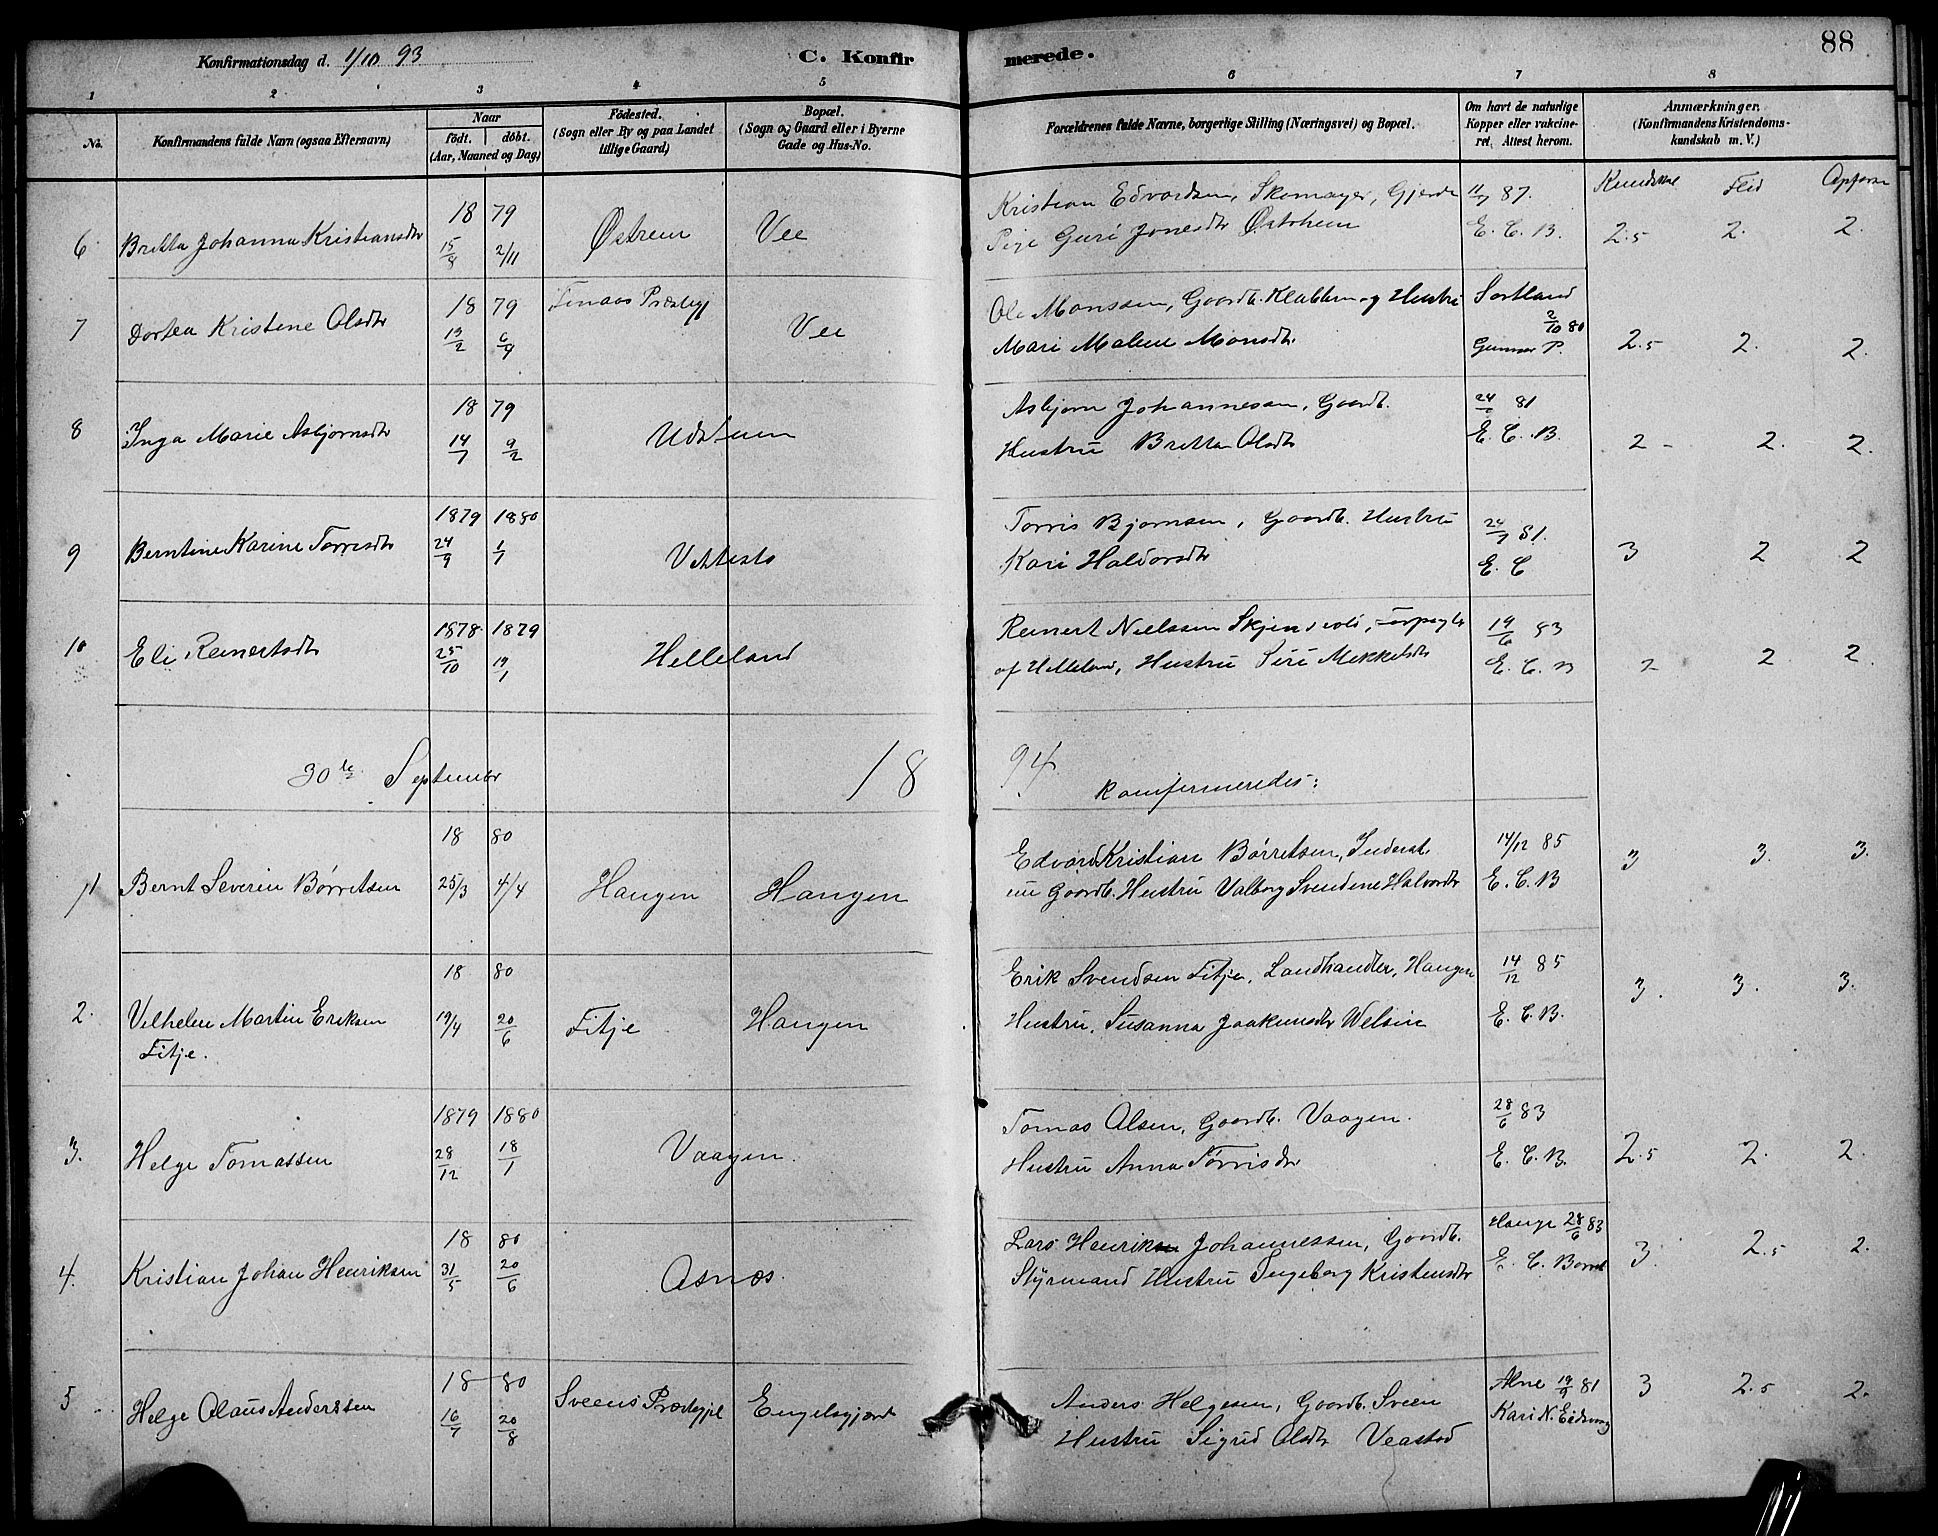 88
Konfirmationsdag d. 1/10 93
C. Konfirmerede.
1 2 3 4 5 6 7 8
No.
Konfirmandens fulde Navn (ogsaa Efternavn)
Naar
födt. döbt.
(Aar, Maaned og Dag)
Födested.
(Sogn eller By og paa Landet
tillige Gaard)
Bopæl.
(Sogn og Gaard eller i Byerne
Gade og Hus-No.
Forældrenes fulde Navne, borgerlige Stilling (Næringsvei) og Bopæl.
Om havt de naturlige
Kopper eller vakcine-
ret. Attest herom.
Anmærkninger.
(Konfirmandens Kristendoms-
kundskab m. V.)
Flid
6 Britta Johanna Kristiansdtr 18 79 15/8 2/11 Østrem Vee
Kristian Edvardsen, Skomager, Gjerde
Pige Guri Jonesdtr Østrhem
87. E. C. B. 2.5 2. 2.
7 Dortea Kristine Olsdtr 18 79 19/2 6/4 Vee
Ole Monssen, Goardb. og Hustru
Mari Malene Monsdtr
Sortland 2/10 80
Gunnar P. 2.5 2. 2.
8 Inga Marie Asbjornsdtr 18 79 14/7 9/2
Asbjorn Johannesen, Goardb.
Hustru Britta Olsdtr
81 E. C. B. 2 - 2. 2.
9 Berntine Karine Torrisdtr 1879 1880 24/9 1/1
Torris Bjornsen, Goardb. Hustru
Kari Haldorsdtr
24/7 81. E. C 3 2 2
10 Eli Reinertsdtr 1878 1879 25/10 19/1 Helleland
Reinert Nielssen
af Helleland, Hustru Siri Mikkelsdtr
19/6 83 E. C. B 2 2 2.
30te September 1894 komfermeredes:
1 Bernt Severin Børretsen 18 80 25/3 4/4 Haugen Haugen
Edvard Kristian Børretsen,
Goardb. Hustru Valborg Svendene Halvordtr
14/12 85 E. C. B 3 3. 3.
2. Vilhelm Martin Eriksen
Fitje.
18 80 19/4 20/6 Fitje Haugen
Erik Svendsen Fitje, Landhandler, Haugen
Hustru, Susanna Joakimsdtr Welsin
14/12 85 E. C. B. 3. 3. 3.
3. Helge Tomassen 1879 1880 28/12 18/1 Vaagen.
Tomas Olsen, Goardb. Vaagen.
Hustru Anna Tørrisdtr
28/6 83 E. C. B. 2.5 2. 2.
4. Kristian Johan Henriksen 18 80 31/5 20/6 Asnæs.
Lars Henrik Johannessen, Goardb.
Styrmand Hustru Ingeborg Kristensdtr
Hauge 28/6 83
E. C. Borret 3. 2.5 2.
5 Helge Olaus Anderssen 18 80 16/7 20/8 Sveens Prestegjel Engelsgjærd
Anders Helgesen, Goardb. Sveen
Hustru Sigrid Olsdtr Veastad
19/9 81
Kari N. Eidsvaag 3 2.5 2.